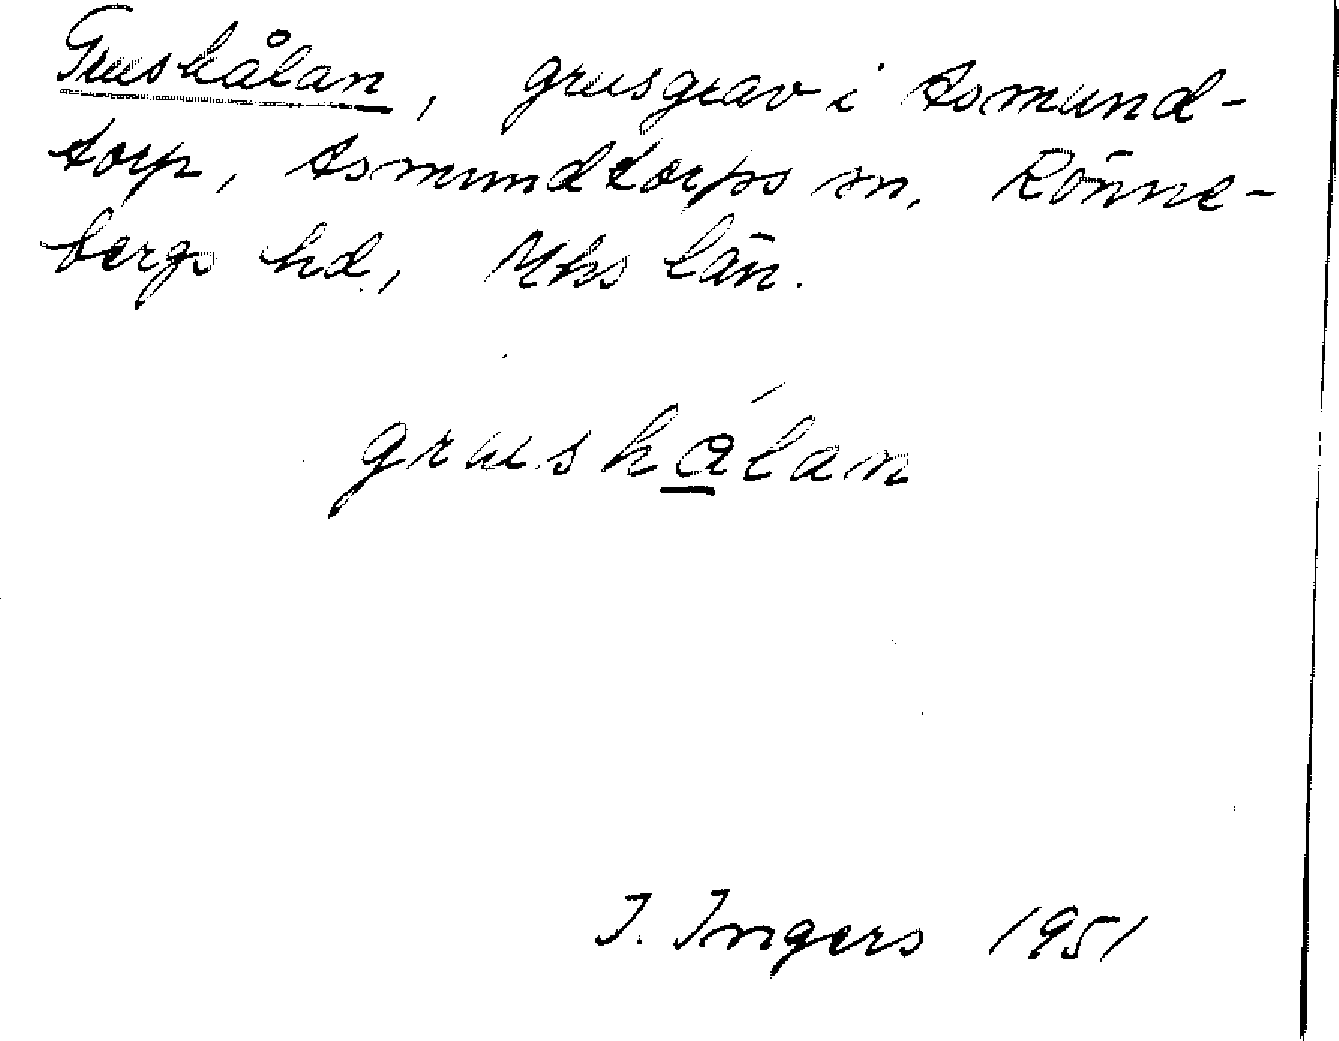 Grushålan, grusgrav i Asmund-
torp, Asmundtorps sn, Rönne-
bergs hd, Mhs län.
grushålan
I. Ingers 1951